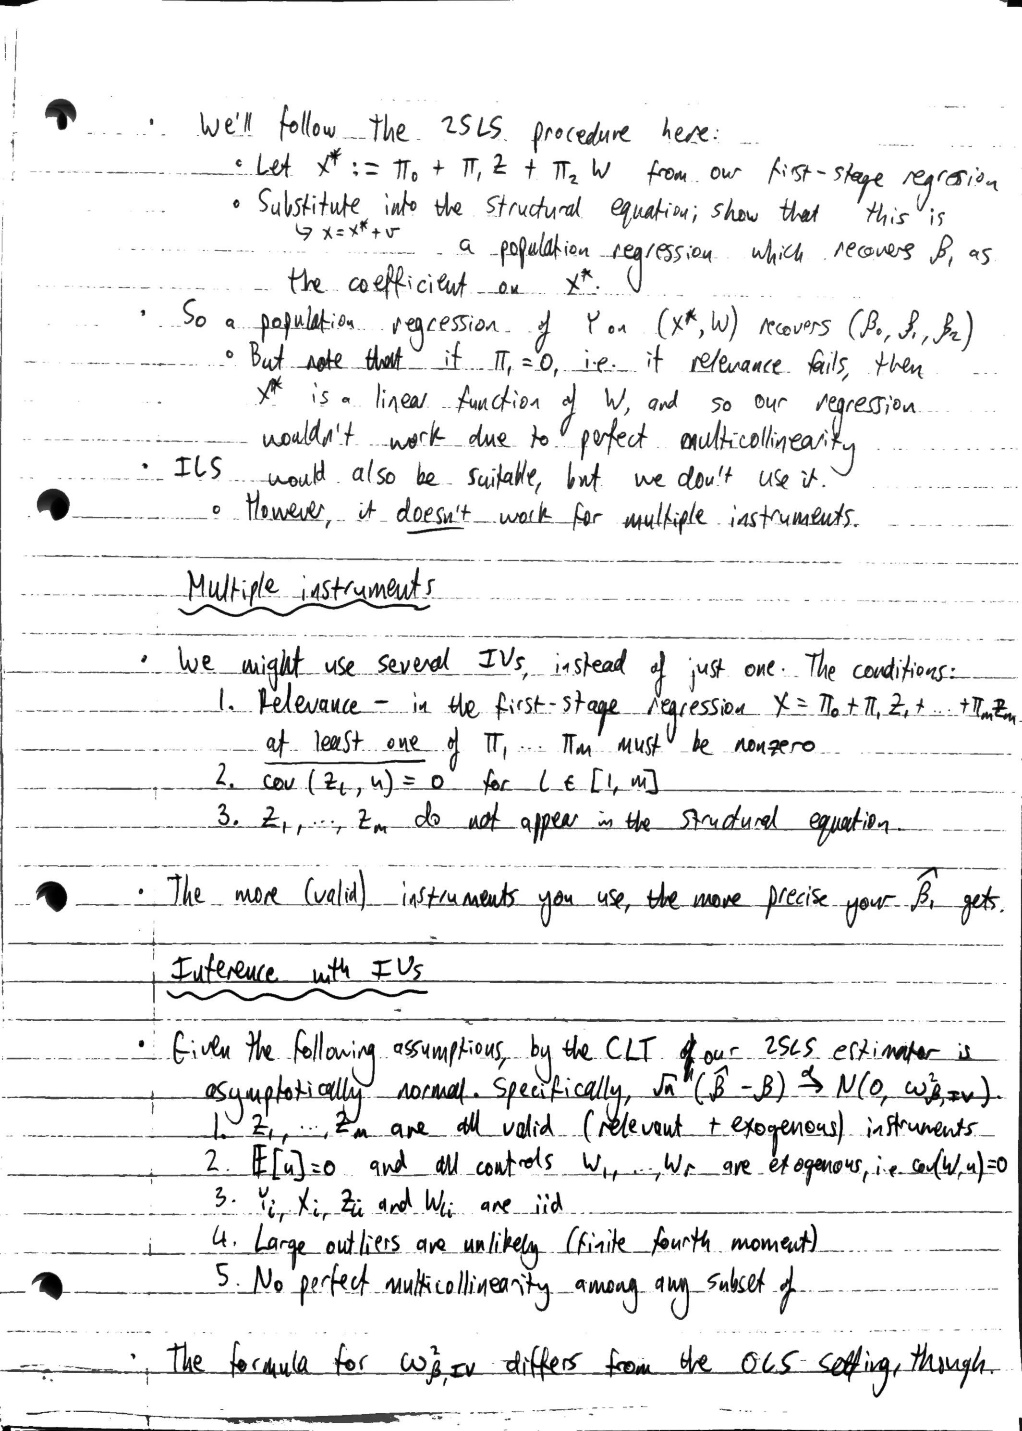 · We'll follow the 2SLS procedure here:
∘ Let X* := π₀ + π₁ Z + π₂ W from our first-stage regression
∘ Substitute into the structural equation; show that this is
↳ X = X* + v
a population regression which recovers β₁ as
the coefficient on X*.
· So a population regression of Y on (X*, W) recovers (β₀, β₁, β₂)
∘ But note that if π₁ = 0, i.e. if relevance fails, then
X* is a linear function of W, and so our regression
wouldn't work due to perfect multicollinearity
· ILS would also be suitable, but we don't use it.
∘ However, it doesn't work for multiple instruments.
Multiple instruments
· We might use several IVs, instead of just one. The conditions:
1. Relevance – in the first-stage regression X = π₀ + π₁ Z₁ + ... + πₘZₘ
at least one of π₁ ... πₘ must be nonzero
2. cov (Zₗ, u) = 0 for l ∈ [1, m]
3. Z₁, ..., Zₘ do not appear in the structural equation.
· The more (valid) instruments you use, the more precise your β̂₁ gets.
Inference with IVs
· Given the following assumptions, by the CLT our 2SLS estimator is
asymptotically normal. Specifically, √n (β̂ - β) →ᵈ N(0, ω²_β,IV).
1. Z₁, ..., Zₘ are all valid (relevant + exogenous) instruments
2. E[u]=0 and all controls W₁, ..., Wᵣ are exogenous, i.e. cov(W,u)=0
3. Yᵢ, Xᵢ, Zₗᵢ and Wₗᵢ are iid
4. Large outliers are unlikely (finite fourth moment)
5. No perfect multicollinearity among any subset of
· The formula for ω²_β,IV differs from the OLS setting, though.